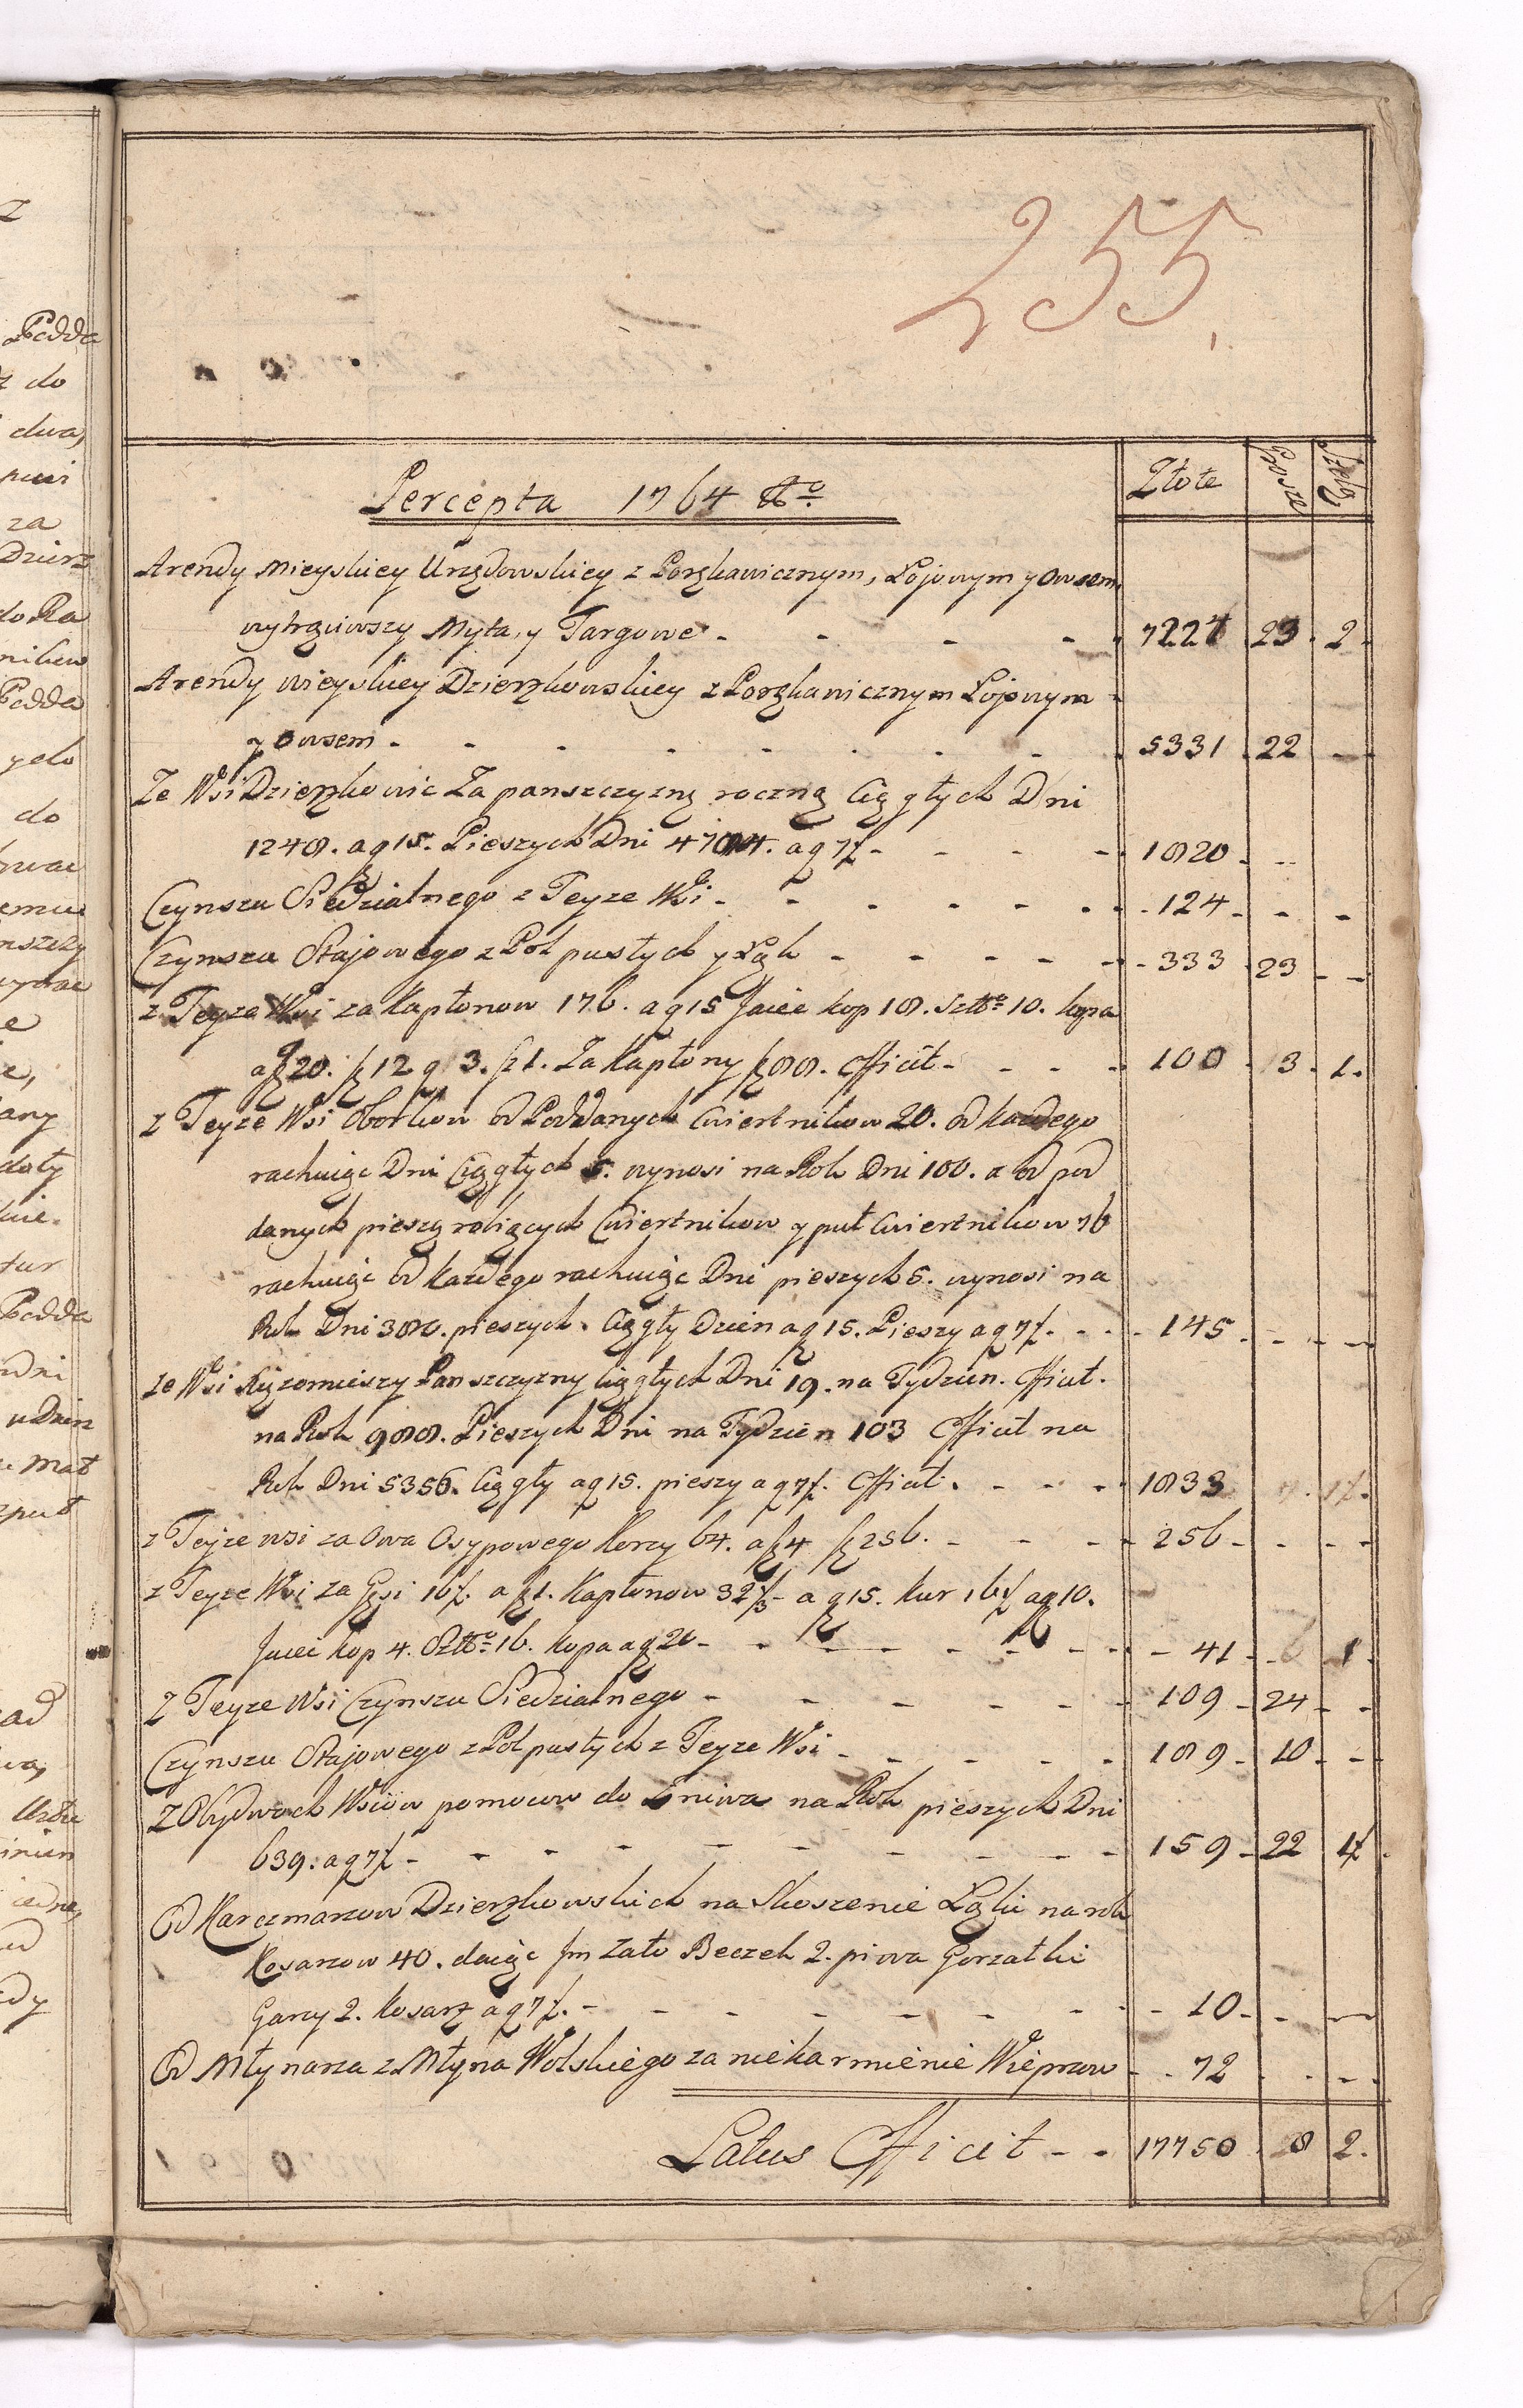 255.
Złote Grosze Szelą
Percepta 1764 Ao
Arendy Mieyskiey Urzędowskiey z Porękawicznym, Łojowym y Owsem,
wytrąciwszy Myta, y Targowe - - - - 7224 23 2
Arendy wieyskiey Dzierzkowskiey z Porękawicznym Łojowym
y Owsem - - - - - - - - 5331 22 -
Ze Wsi Dzierzkowic Za panszczyznę roczną Ciągłych Dni
1248. a g 15. Pieszych Dni 4784. a g 7½ - - - - 1820 - -
Czynszu Siedzialnego z Teyze Wsi - - - - - - 124 - - -
Czynszu Stajowego z Pol pustych y Łąk - - - - - 333 23 - -
z Teyze Wsi za Kapłonow 176. a g 15 Jaiec kop 18. Sztk 10. kopa
a g 20. fl 12 g 3. sz 1. Za Kapłony fl 88. Efficit - - - 100 3 1.
z Teyze Wsi Oborkow od Poddanych Cwiertnikow 20. od kazdego
rachuiąc Dni Ciągłych 5. wynosi na Rok Dni 100. a od pod
danych pieszo robiących Cwiertnikow y puł Cwiertnikow 76
rachuiąc od kazdego rachuiąc Dni pieszych 5. wynosi na
Rok Dni 380. pieszych. Ciągły Dzien a g 15. Pieszy a g 7½. - - 145 - - -
ze Wsi Xięzomieszy Panszczyzny Ciągłych Dni 19. na Tydzien. Efficit.
na Rok 988. Pieszych Dni na Tydzien 103 Efficit na
Rok Dni 5356. Ciągły a g 15. pieszy a g 7½. Efficit. - - - 1833
z Teyze wsi za Owa Osypowego Korcy 64. a fl 4 fl 256. - - - - 256 - - - -
z Teyze Wsi za Gęsi 16½. a fl 1. Kapłonow 32⅔ - a g 15. Kur 16½ a g 10.
Jaiec kop 4. Sztk 16. kopa a g 20 - - - - - - - - 41 - 6 1
Z Teyze Wsi Czynszu Siedzialnego - - - - - - 109 - 24 - -
Czynszu Stajowego z Pol pustych z Teyze Wsi - - - - - 189 - 10 - -
Z Obydwoch Wsiow pomocow do Zniwa na Rok pieszych Dni
639. a g 7½ - - - - - - - - - 159 - 22 1½
Od Karczmarzow Dzierzkowskich na Skoszenie Łąki na rok
Kosarzow 40. daiąc Im Zato Beczek 2. piwa Gorzałki
Garcy 2. Kosarz a g 7½. - - - - - - - - 10 - - -
Od Młynarza z Młyna Wolskiego za niekarmienie Wieprzow - - 72 - - -
Latus Efficit - - 17750 8 2.